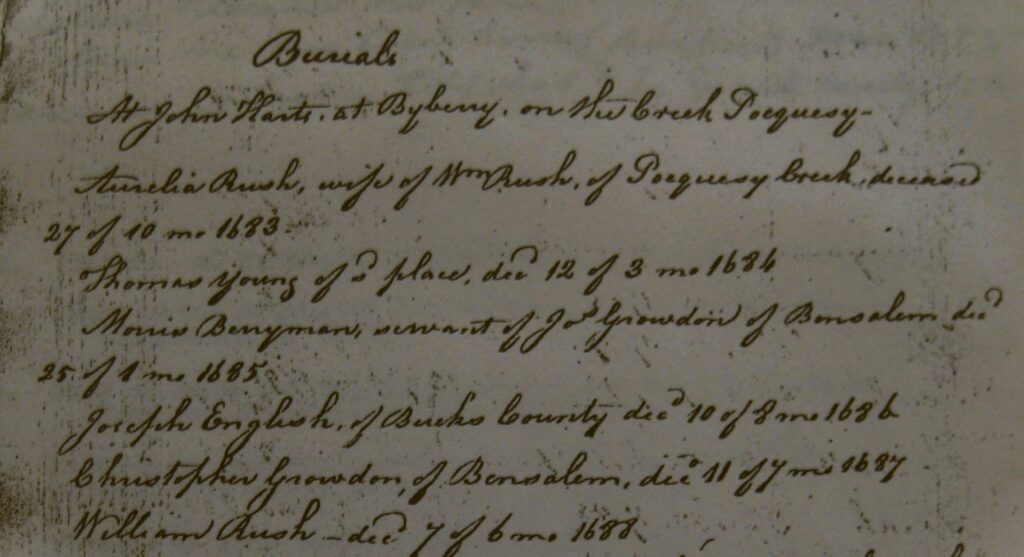 Burials
At John Harts, at Byberry, on the Creek Poequesy-
Aurelia Rush, wife of Wm Rush, of Poequesy Creek, deceased
27 of 10 mo 1683-
Thomas young of sd place, decd 12 of 3 mo 1684
Morris Berryman, servant of Jos Growdon of Bensalem decd
25 of 1 mo 1685
Joseph English, of Bucks County decd 10 of 8 mo 1686
Christopher Growdon, of Bensalem, decd 11 of 7 mo 1687
William Rush - decd 7 of 6 mo 1688